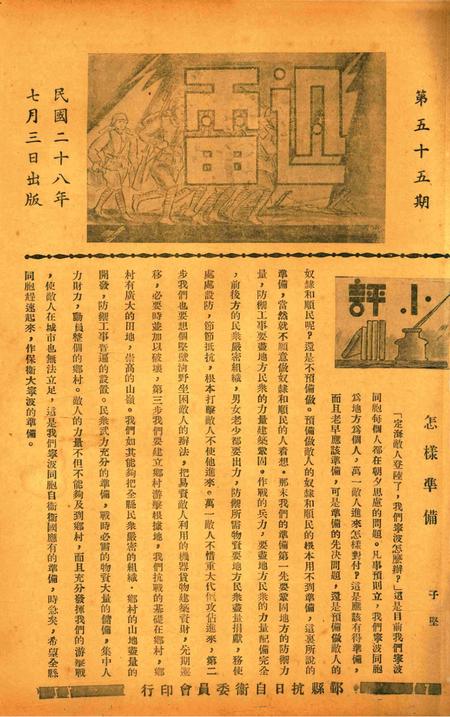 第五十五期
迅雷
民國二十八年
七月三日出版
小評
怎樣準備
子堅
「定海敵人登陸了，我們寧波怎麼辦？」這是目前我們寧波
同胞每個人都在朝夕思慮的問題。凡事預則立，我們寧波同胞
爲地方爲個人，萬一敵人進來怎樣對付？這是應該有得準備，
而且老早應該準備，可是準備的先決問題，還是預備做敵人的
奴隸和順民呢？還是不預備做。預備做敵人的奴隸和順民的根本用不到準備，這裏所說的
準備，當然就不願意做奴隸和順民的人着想。那末我們的準備第一先要鞏固地方的防禦力
量，防禦工事要盡地方民衆的力量建築鞏固。作戰的兵力，要盡地方民衆的力量配備完全
，前後方的民衆嚴密組織，男女老少都要出力，防禦所需物資要地方民衆盡量捐獻，務使
處處設防，節節抵抗，根本打擊敵人不使他進來。萬一敵人不惜重大代價攻佔進來，第二
步我們也要想個堅壁清野坐困敵人的辦法，把易資敵人利用的機器貨物建築資財，先期遷
移，必要時並加以破壞，第三步我們要建立鄉村游擊根據地，我們抗戰的基礎在鄉村，鄉
村有廣大的田地，崇高的山嶺。我們如其能夠把全縣民衆嚴密的組織，鄉村的山地盡量的
開發，防禦工事普遍的設置。民衆武力充分的準備，戰時必需的物資大量的儲備，集中人
力財力，動員整個的鄉村。敵人的力量不但不能夠及到鄉村，而且充分發揮我們的游擊戰
，使敵人在城市也無法立足，這是我們寧波同胞自衛衛國應有的準備，時急矣，希望全縣
同胞趕速起來，作保衛大寧波的準備。
鄞縣抗日自衛委員會印行